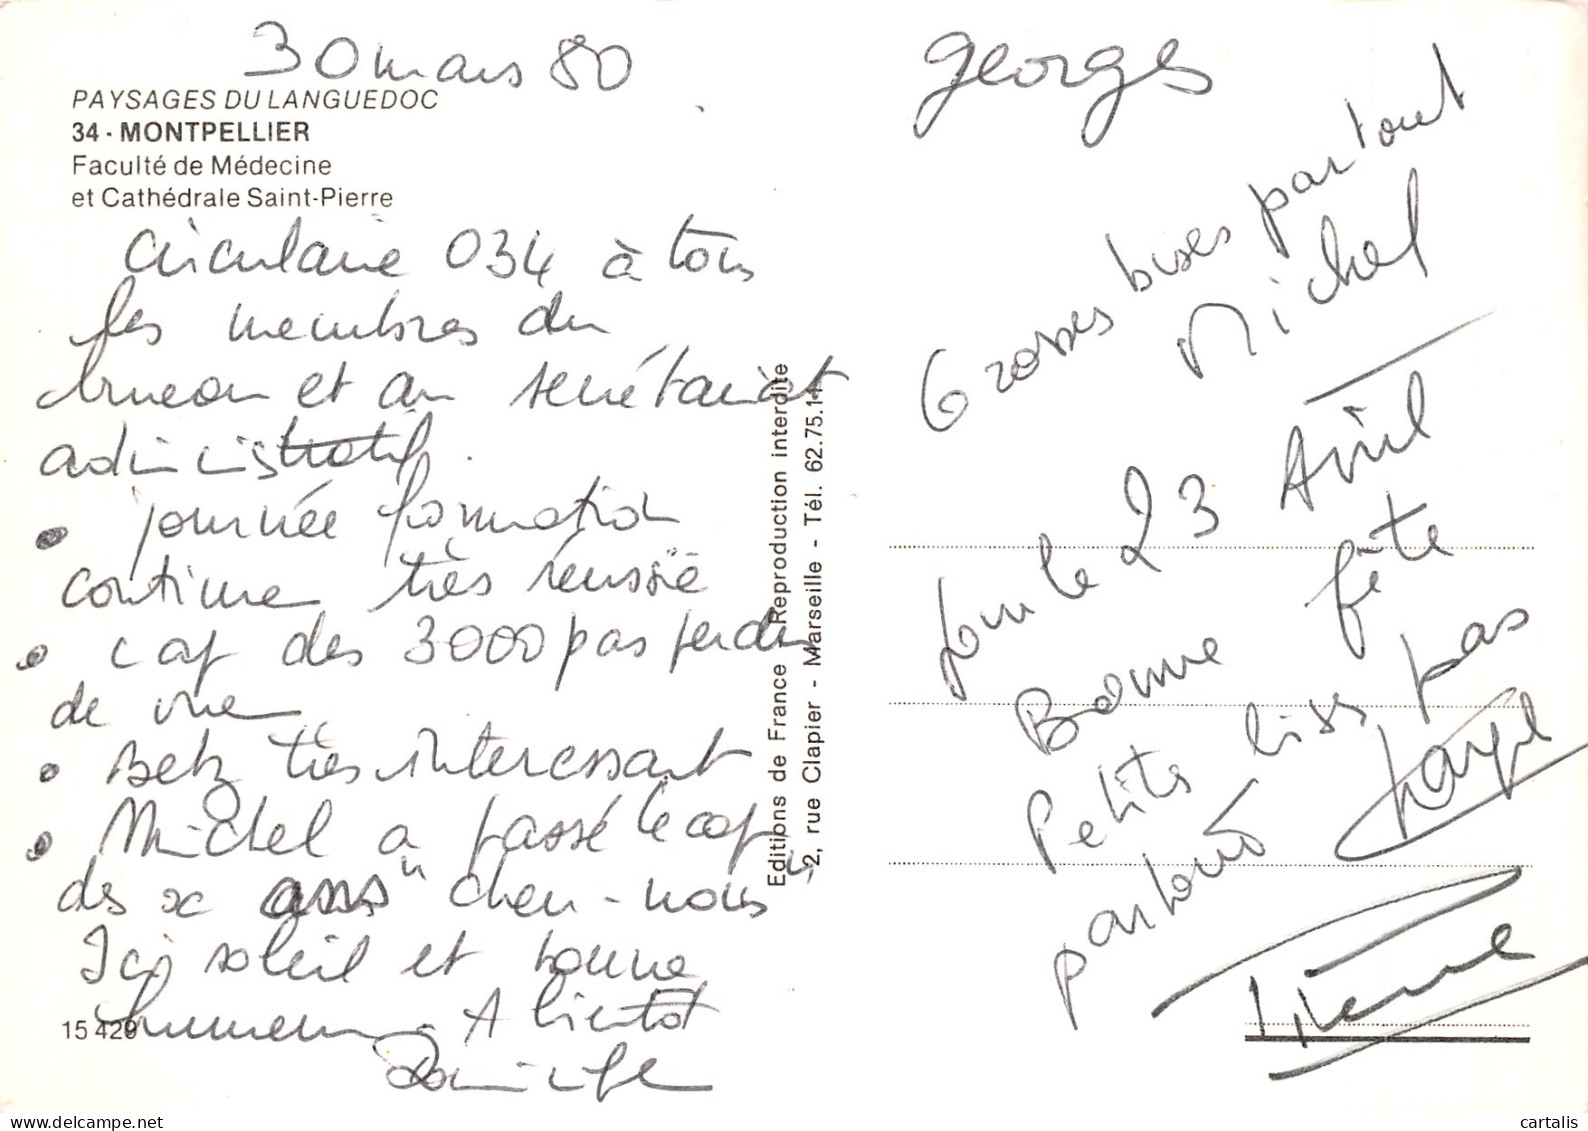 30 mars 80
PAYSAGES DU LANGUEDOC
34 - MONTPELLIER
Faculté de Médecine
et Cathédrale Saint-Pierre
Circulaire 034 à tous
les membres du
bureau et au secrétariat
administratif.
• journée formation
continue très réussie
• cap des 3000 pas perdu
de vue
• Betz très interessant
• Michel a passé le cap
des x "ans" chez-nous
Ici soleil et bonne
humeur - A bientôt
15 429
Editions de France - Reproduction interdite
2, rue Clapier - Marseille - Tél. 62.75.11
georges
Grosses bises partout
Michel
Pour le 23 Avril
Bonne fête
Petits bises pas
partout
Pierre
cartalis